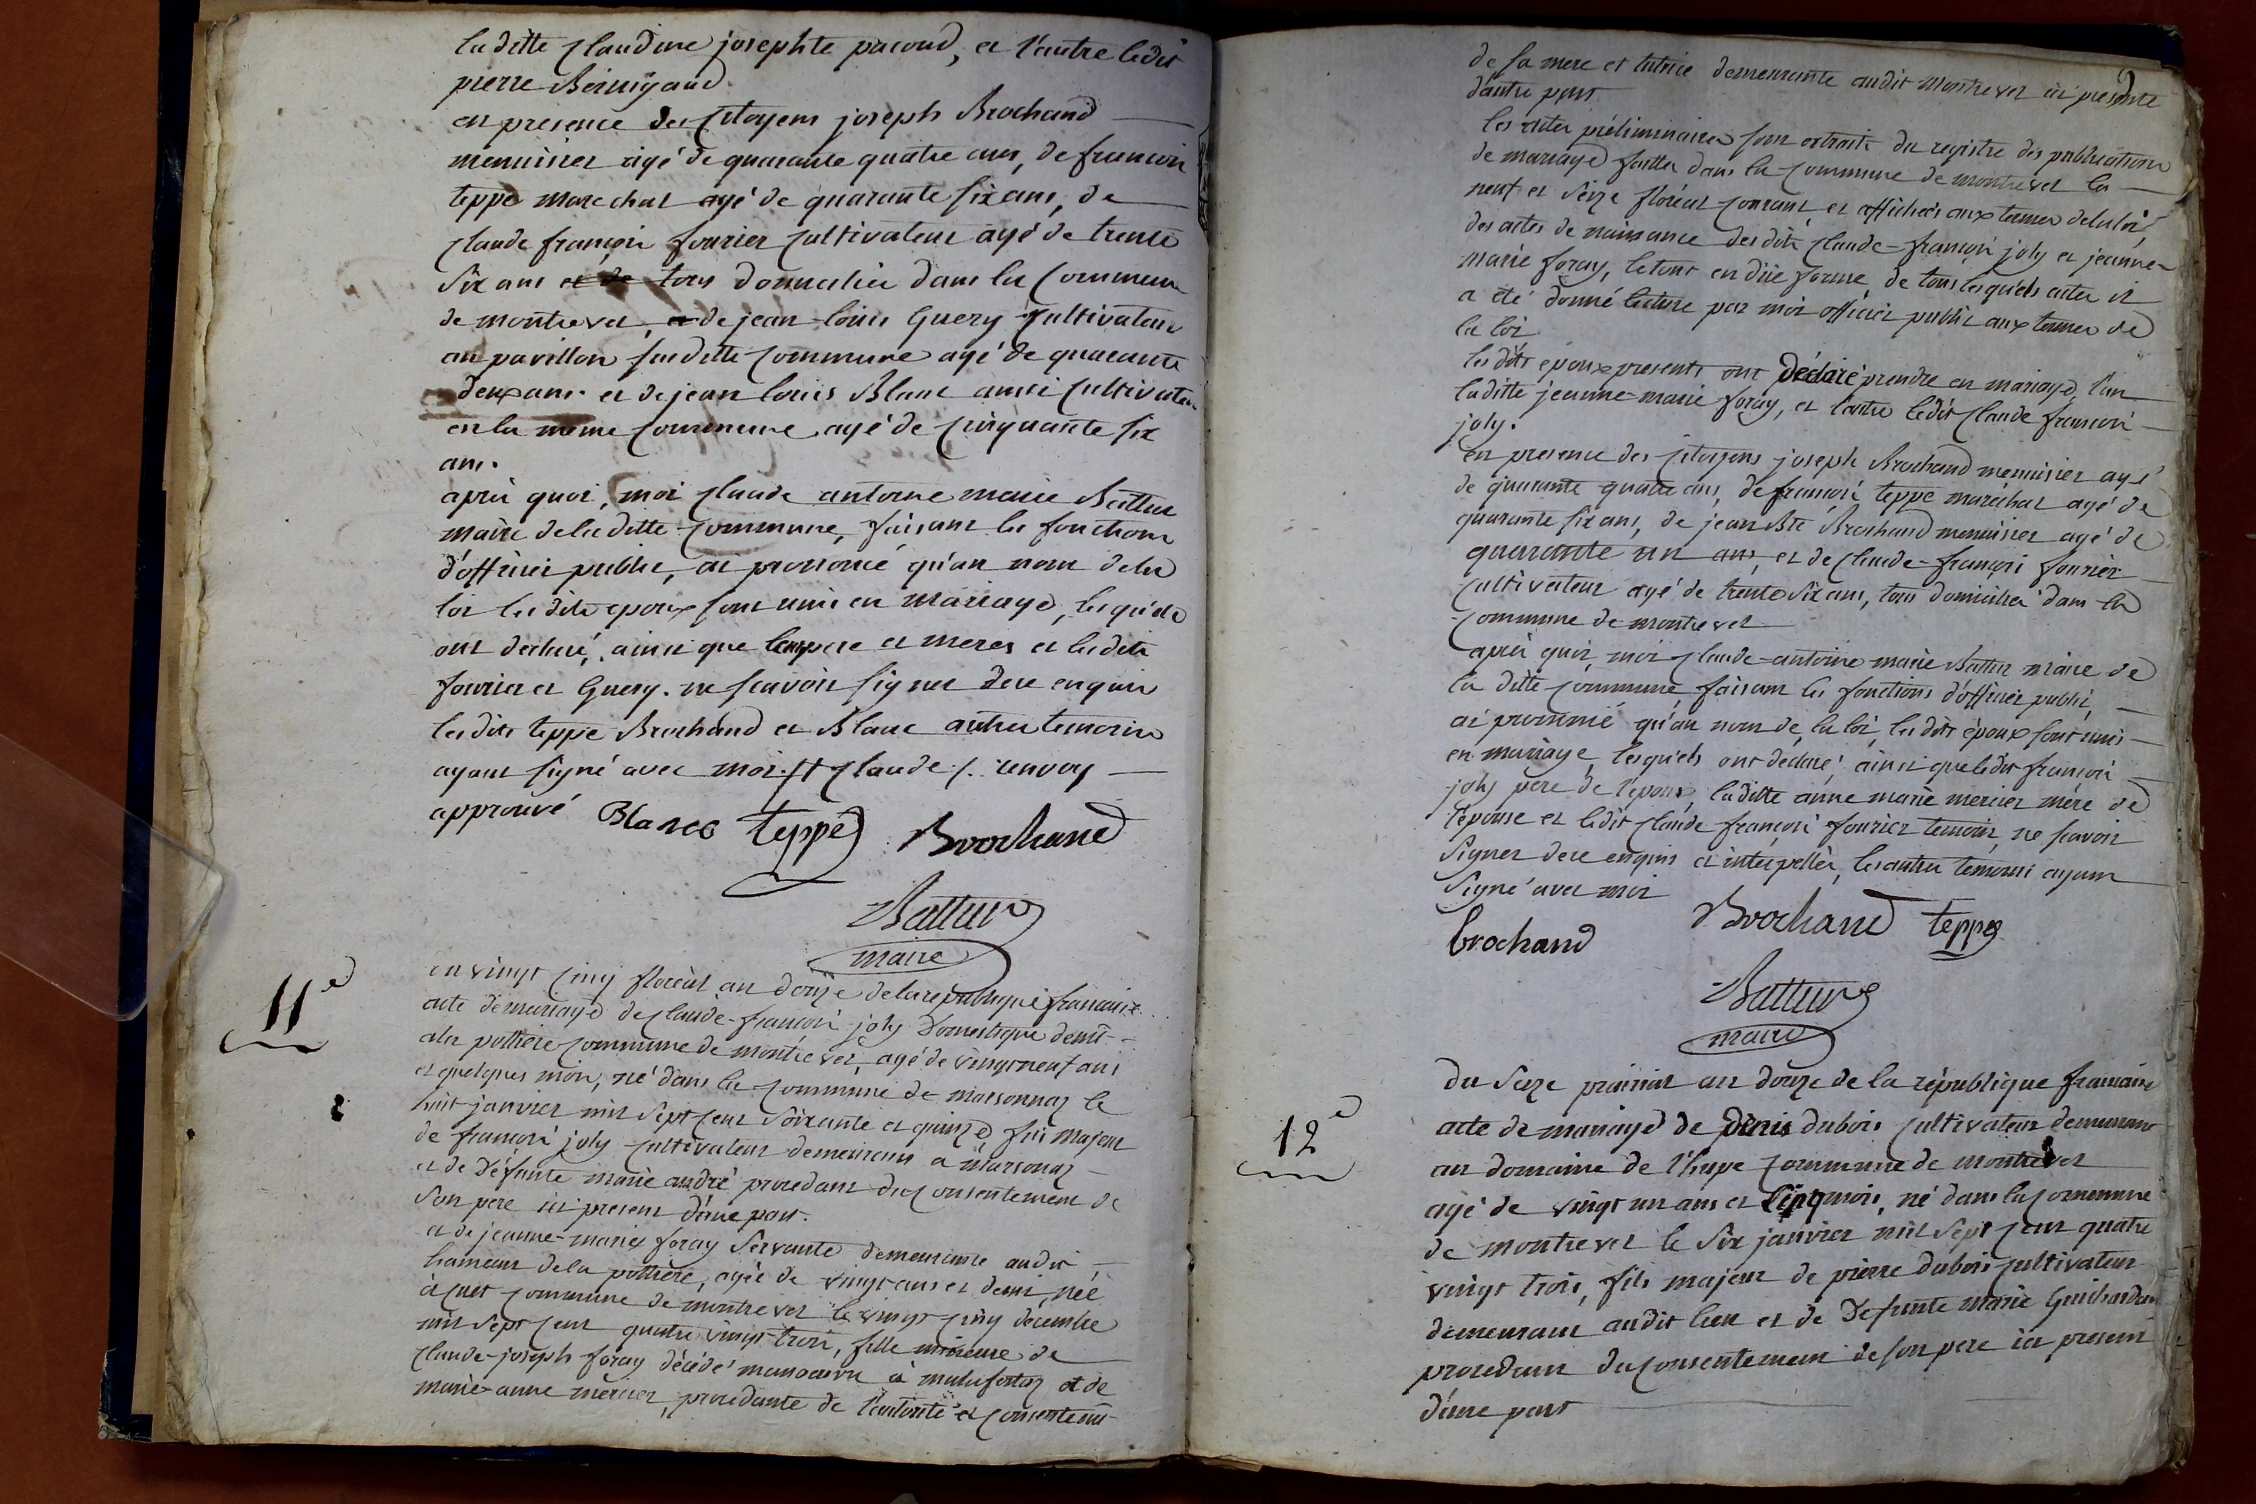 la ditte Claudine josephte pacoud, et l'autre ledit
pierre
en presence des Citoyens joseph Brochand
menuisier agé de quarante quatre ans, de francois
teppe marechal agé de quarante six ans, de
Claude françois fourier Cultivateur agé de trente
six ans et de tous domiciliés dans la Commune
de montrevel, et de jean louis Guery Cultivateur
au pavillon susditte Commune agé de quarante
deux ans et de jean louis Blanc aussi Cultivateur
en la même Commune agé de Cinquante six
ans.
après quoi, moi Claude antoine marie Battur
maire de laditte Commune, faisant les fonctions
d'officier public, ai prononcé qu'au nom de la
loi les dits epoux sont unis en mariage, lesquels
ont déclaré, ainsi que pere et meres et lesdits
fourier et Guery. ne scavoir signer de ce enquis
lesdits teppe Brochand et Blanc autres temoins
ayant signé avec moi Claude /. renvoy
approuvé Blanc teppe Brochand
Battur
maire
11e
du vingt Cinq floréal an douze de la republique francaise
acte de mariage de Claude-francois joly Domestique demt
a la pottière Commune de montrevel, agé de vingt neuf ans
et quelques mois, né dans la Commune de marsonnaz le
huit janvier mil sept Cent soixante et quinze, fils majeur
de francois joly Cultivateur demeurant a marsonaz
et de défunte marie andré procedant du Consentement de
son pere ici present d'une part.
et de jeanne-marie foray servante demeurante audit
hameau de la pottière, agée de vingt ans et demi, née
à Cuet Commune de montrevel le vingt Cinq decembre
mil sept Cent quatre vingt trois, fille mineure de
Claude-joseph foray décédé manoeuvre à malafretaz et de
marie-anne mercier, procedante de l'autorité et Consentemt
de sa mere et tutrice demeurante audit montrevel ici presente
d'autre part
les actes préliminaires sont extraits du registre des publications
de mariage faittes dans la Commune de montrevel les
neuf et seize floréal Courant et affichées aux termes de la loi,
des actes de naissance desdits Claude-françois joly et jeanne-
marie foray, le tout en düe forme, de tous lesquels actes il
a été donné lecture par moi officier public aux termes de
la loi
les dits epoux presents ont déclaré prendre en mariage, l'un
laditte jeanne-marie foray, et l'autre ledit Claude françois
joly.
en presence des Citoyens joseph Brochand menuisier agé
de quarante quatre ans, de françois teppe maréchal agé de
quarante six ans, de jean Bte Brochand menuisier agé de
quarante un ans, et de Claude-françois fourier
Cultivateur agé de trente six ans, tous domiciliés dans la
Commune de montrevel
après quoi, moi Claude-antoine marie Battur maire de
la ditte Commune faisant les fonctions d'officier public,
ai prononcé qu'au nom de la loi, les dits époux sont unis
en mariage, lesquels ont déclaré, ainsi que ledit francois
joly pere de l'epoux, laditte anne marie mercier mére de
l'epouse et ledit Claude françois fourier temoin, ne scavoir
signer de ce enquis et interpellés, les autres temoins ayant
signé avec moi
brochand Brochand teppe
Battur
maire
12e
du seize prairial an douze de la république francaise
acte de mariage de denis dubois Cultivateur demeurant
au domaine de Commune de montrevel
agé de vingt un ans et Cinq mois, né dans la Commune
de montrevel le six janvier mil sept Cent quatre
vingt trois, fils majeur de pierre dubois Cultivateur
demeurant audit lieu et de Defunte marie Guichardan
procedant du Consentement de son pere ici present
d'une part